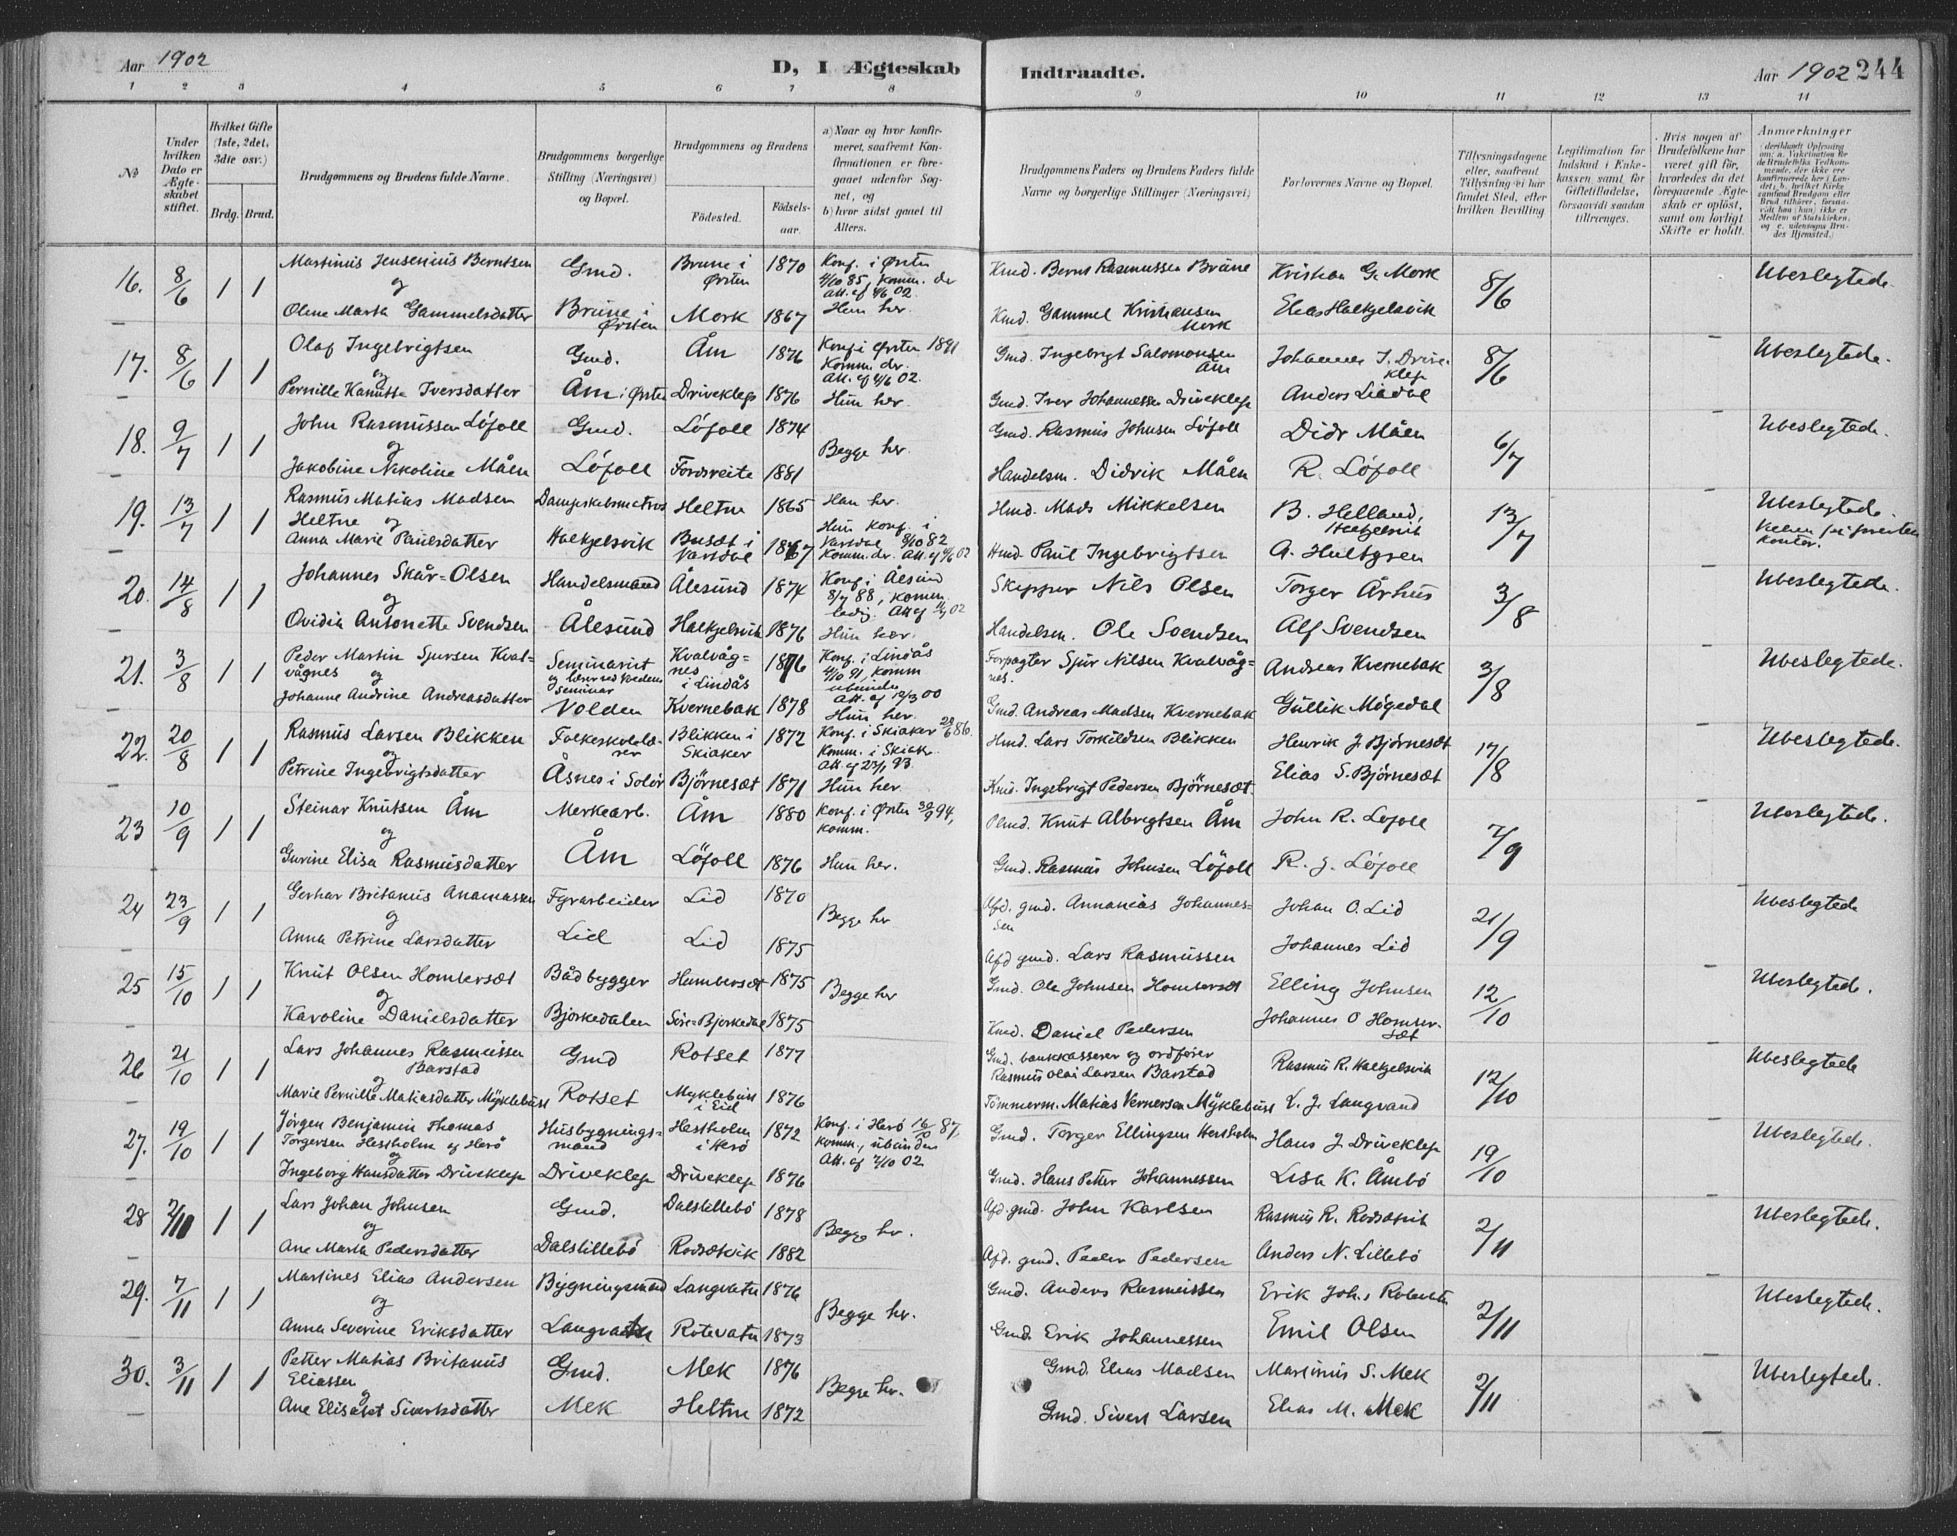 Aar 1902 D, I Ægteskab
Indtraadte. Aar 1902 244
1 2 3 4 5 6 7 8 9 10 11 12 13 14
№
Under hvilken Dato er Ægteskabet stiftet.
Hvilket Gifte (1ste, 2det, 3die osv.)
Brdg. Brud.
Brudgommens og Brudens fulde Navne.
Brudgommens borgerlige Stilling (Næringsvei) og Bopæl.
Brudgommens og Brudens
Fødested.
Fødselsaar.
a) Naar og hvor konfirmeret, saafremt Konfirmationen er foregaaet udenfor Sognet, og
b) hvor sidst gaaet til Alters.
Brudgommens Faders og Brudens Faders fulde Navne og borgerlige Stillinger (Næringsvei)
Forlovernes Navne og Bopæl.
Tillysningsdagene eller, saafremt Tillysning ei har fundet Sted, efter hvilken Bevilling
Legitimation for Indskud i Enkekassen samt for Giftetilladelse, forsaavidt saadan tiltrænges.
Hvis nogen af Brudefolkene har været gift før, hvorledes da det foregaaende Ægteskab er opløst, samt om lovligt Skifte er holdt.
Anmærkninger
16. 8/6 1 1 Martinus Jensenius Berntsen Gmd. Brune i Ørsten 1870 Konf. i Ørsten 4/10 85, komm. dr Att. af 4/6 02. Kmd. Bernt Rasmussen Brune Kristian G. Mork 8/6 Ubeslegtede.
og
Oline Marta Gammelsdatter Brune i Ørsten Mork 1867 Hun her. Kmd. Gammel Kristiansen Mork Elias Halkjelsvik
17. 8/6 1 1 Olaf Ingebrigtsen Gmd. Åm 1876 Konf. i Ørsten 1891 Komm. dr. Att. af 4/6 02. Gmd. Ingebrigt Salomonsen Åm Johannes I. Driveklep 8/6 Ubeslegtede.
og
Pernille Kanutta Iversdatter Åm i Ørsten Driveklep 1876 Hun her. Gmd. Iver Johannessen Driveklep Anders Liadal
18. 9/7 1 1 John Rasmussen Löfoll Gmd. Löfoll 1874 Begge her. Gmd. Rasmus Johnsen Löfoll Didr Måen 6/7 Ubeslegtede.
og
Jakobine Nikoline Måen Löfoll Fordsreite 1881 Handelsm. Didrik Måen R. Löfoll
19. 13/7 1 1 Rasmus Matias Madsen Heltne Dampskibsmatros Heltne 1865 Han her. Hmd. Mads Mikkelsen B. Helland, Halkjelsvik 13/7 Ubeslegtede.
og
Anna Marie Paulsdatter Halkjelsvik Busæt i Vartdal 1867 Hun konf. i Vartdal 8/10 82 Komm. dr. Att. af 9/6 02 Hmd. Paul Ingebrigtsen A. Hultgren
20. 14/8 1 1 Johannes Skår-Olsen Handelsmand Ålesund 1874 Konf. i Ålesund 8/7 88, komm. ledig. Skipper Nils Olsen Torger Århus 3/8 Ubeslegtede.
og
Ovidia Antonette Svendsen Ålesund Halkjelsvik 1876 Hun her. Handelsm. Ole Svendsen Alf Svendsen
21. 3/8 1 1 Peder Martin Sjursen Kvalvågnes Seminarist Kvalvågnes i Lindås 1876 Konf. i Lindås 4/10 91, komm ubunden Att. af 12/3 00 Forpagter Sjur Nilsen Kvalvågnes. Andreas Kvernebak 3/8 Ubeslegtede.
og
Johanne Andrine Andreasdatter Volden Kvernebak 1878 Hun her. Gmd. Andreas Madsen Kvernebak Gullik Mögedal
22. 20/8 1 1 Rasmus Larsen Blikken Folkeskolelærer Blikken i Skiaker 1872 Konf. i Skiaker 86. Komm. i Skiak. Att. af 23/1 93 Hmd. Lars Torkildsen Blikken Henrik J Bjørnesæt 17/8 Ubeslegtede.
og
Petrine Ingebrigtsdatter Åsnes i Solör Bjørnesæt 1871 Hun her. Kmd. Ingebrigt Pedersen Bjørnesæt. Elias S. Bjørnesæt
23 10/9 1 1 Steinar Knutsen Åm Merkearb. Åm 1880 Konf. i Ørsten 94, komm. Knut Albrigtsen Åm John R. Lofoll 7/9 Ubeslegtede.
og
Gurine Elisa Rasmusdatter Åm Löfoll 1876 Hun her. Gmd. Rasmus Johnsen Löfoll R. J. Löfoll
24 23/9 1 1 Gerhar Britanus Ananiassen Fyrarbeider Lid 1870 Begge her Afd. gmd. Annanias Johannessen Johan O. Lid 21/9 Ubeslegtede
og
Anna Petrine Larsdatter Lid Lid 1875 Afd gmd. Lars Rasmussen Johannes Lid
25 15/10 1 1 Knut Olsen Hombersæt Bådbygger Humbersæt 1875 Begge her Gmd. Ole Johnsen Homberset Elling Johnsen 12/10 Ubeslegtede.
og
Karoline Danielsdatter Bjorkedalen Söre-Bjorkedal 1875 Kmd. Daniel Pedersen Johannes O Homberset
26 21/10 1 1 Lars Johannes Rasmussen Barstad Gmd Rotset 1877 Gmd. bankkasserer og ordfører Rasmus Olai Larsen Barstad Rasmus R. Halkjelsvik 12/10 Ubeslegtede
og
Marie Pernille Matiasdatter Myklebust Rotset Myklebust i Eid 1876 Tömmerm. Matias Vernersen Myklebust L. J. Langvand
27. 19/10 1 1 Jørgen Benjamin Thomas Torgersen Hestholm af Herö Husbygningsmand Hestholm i Herö 1872 Konf. i Herö 16/10 87, komm., ubunden Att. af 2/10 02 Gmd. Torger Ellingsen Hestholm Hans J Driveklep 19/10 Ubeslegtede.
og
Ingeborg Hansdatter Driveklep Driveklep Driveklep 1876 Gmd. Hans Petter Johannessen Lisa K. Åmbö
28 2/11 1 1 Lars Johan Johnsen Gmd. Dalslillebö 1878 Begge her. Afd. gmd. John Karlsen Rasmus R. 2/11 Ubeslegtede.
og
Ane Marta Pedersdatter Dalslillebö 1882 Afd. gmd. Peder Pedersen Anders N. Lillebö
29. 7/11 1 1 Martines Elias Andersen Bygningsmand Langvatn 1876 Begge her. Gmd. Anders Rasmussen Erik Joh.s Rotevatn 2/11 Ubeslegtede.
og
Anna Severine Eriksdatter Langvatn Rotevatn 1873 Gmd. Erik Johannessen Emil Olsen
30. 3/11 1 1 Petter Matias Britanus Eliassen Gmd. Mek 1876 Begge her. Gmd Elias Madsen Martinus S. Mek 2/11 Ubeslegtede.
og
Ane Elisabet Sivertsdatter Mek Heltne 1872 Gmd. Sivert Larsen Elias M. Mek